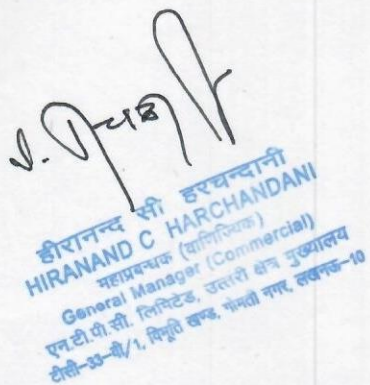 हीरानन्द सी हरचन्दानी
HIRANAND C HARCHANDANI
महाप्रबन्धक (वाणिज्यिक)
General Manager (Commercial)
एन.टी.पी.सी. लिमिटेड, उत्तरी क्षेत्र मुख्यालय
टीसी-33-वी/1, विभूति खण्ड, गोमती नगर, लखनऊ-10